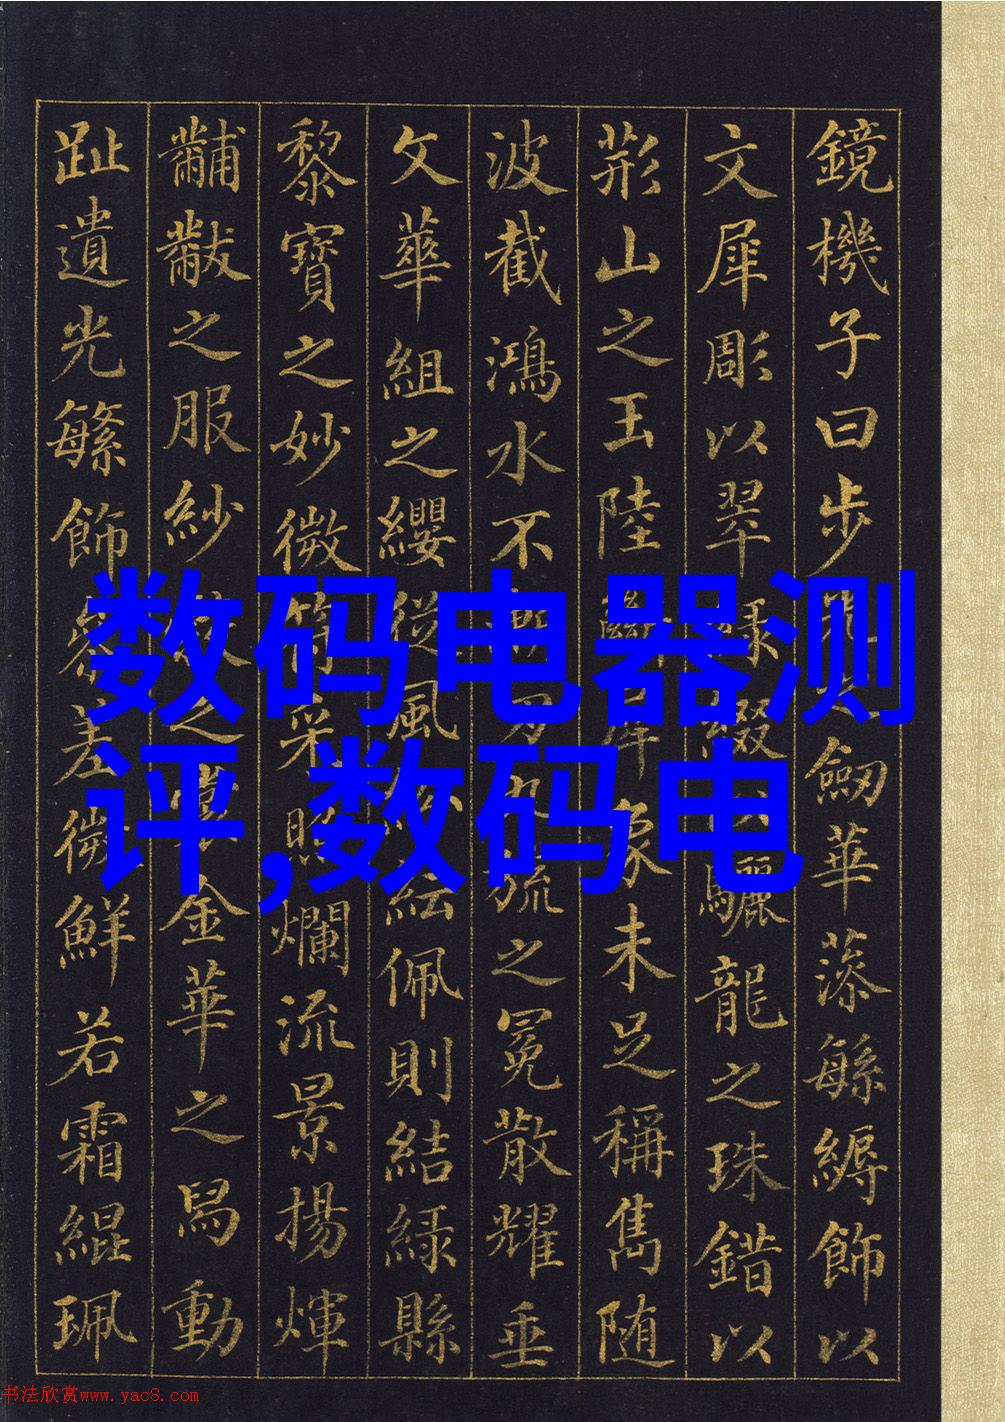 鏡機子曰步劒華藻緐縟飾以
文犀彫以翠綴驪龍之珠錯以
荊山之玉陸犀象未足稱雋随
波截鴻水不九旒之冕散耀垂
文華組之纓從風紜佩則結緑縣
黎寶之妙微符采照爛流景揚煇
黼黻之服紗之裳金華之舄動
趾遺光緐飾參差微鮮若霜緄珮
数码电器测
评,数码电
书法欣赏www.yac8.com